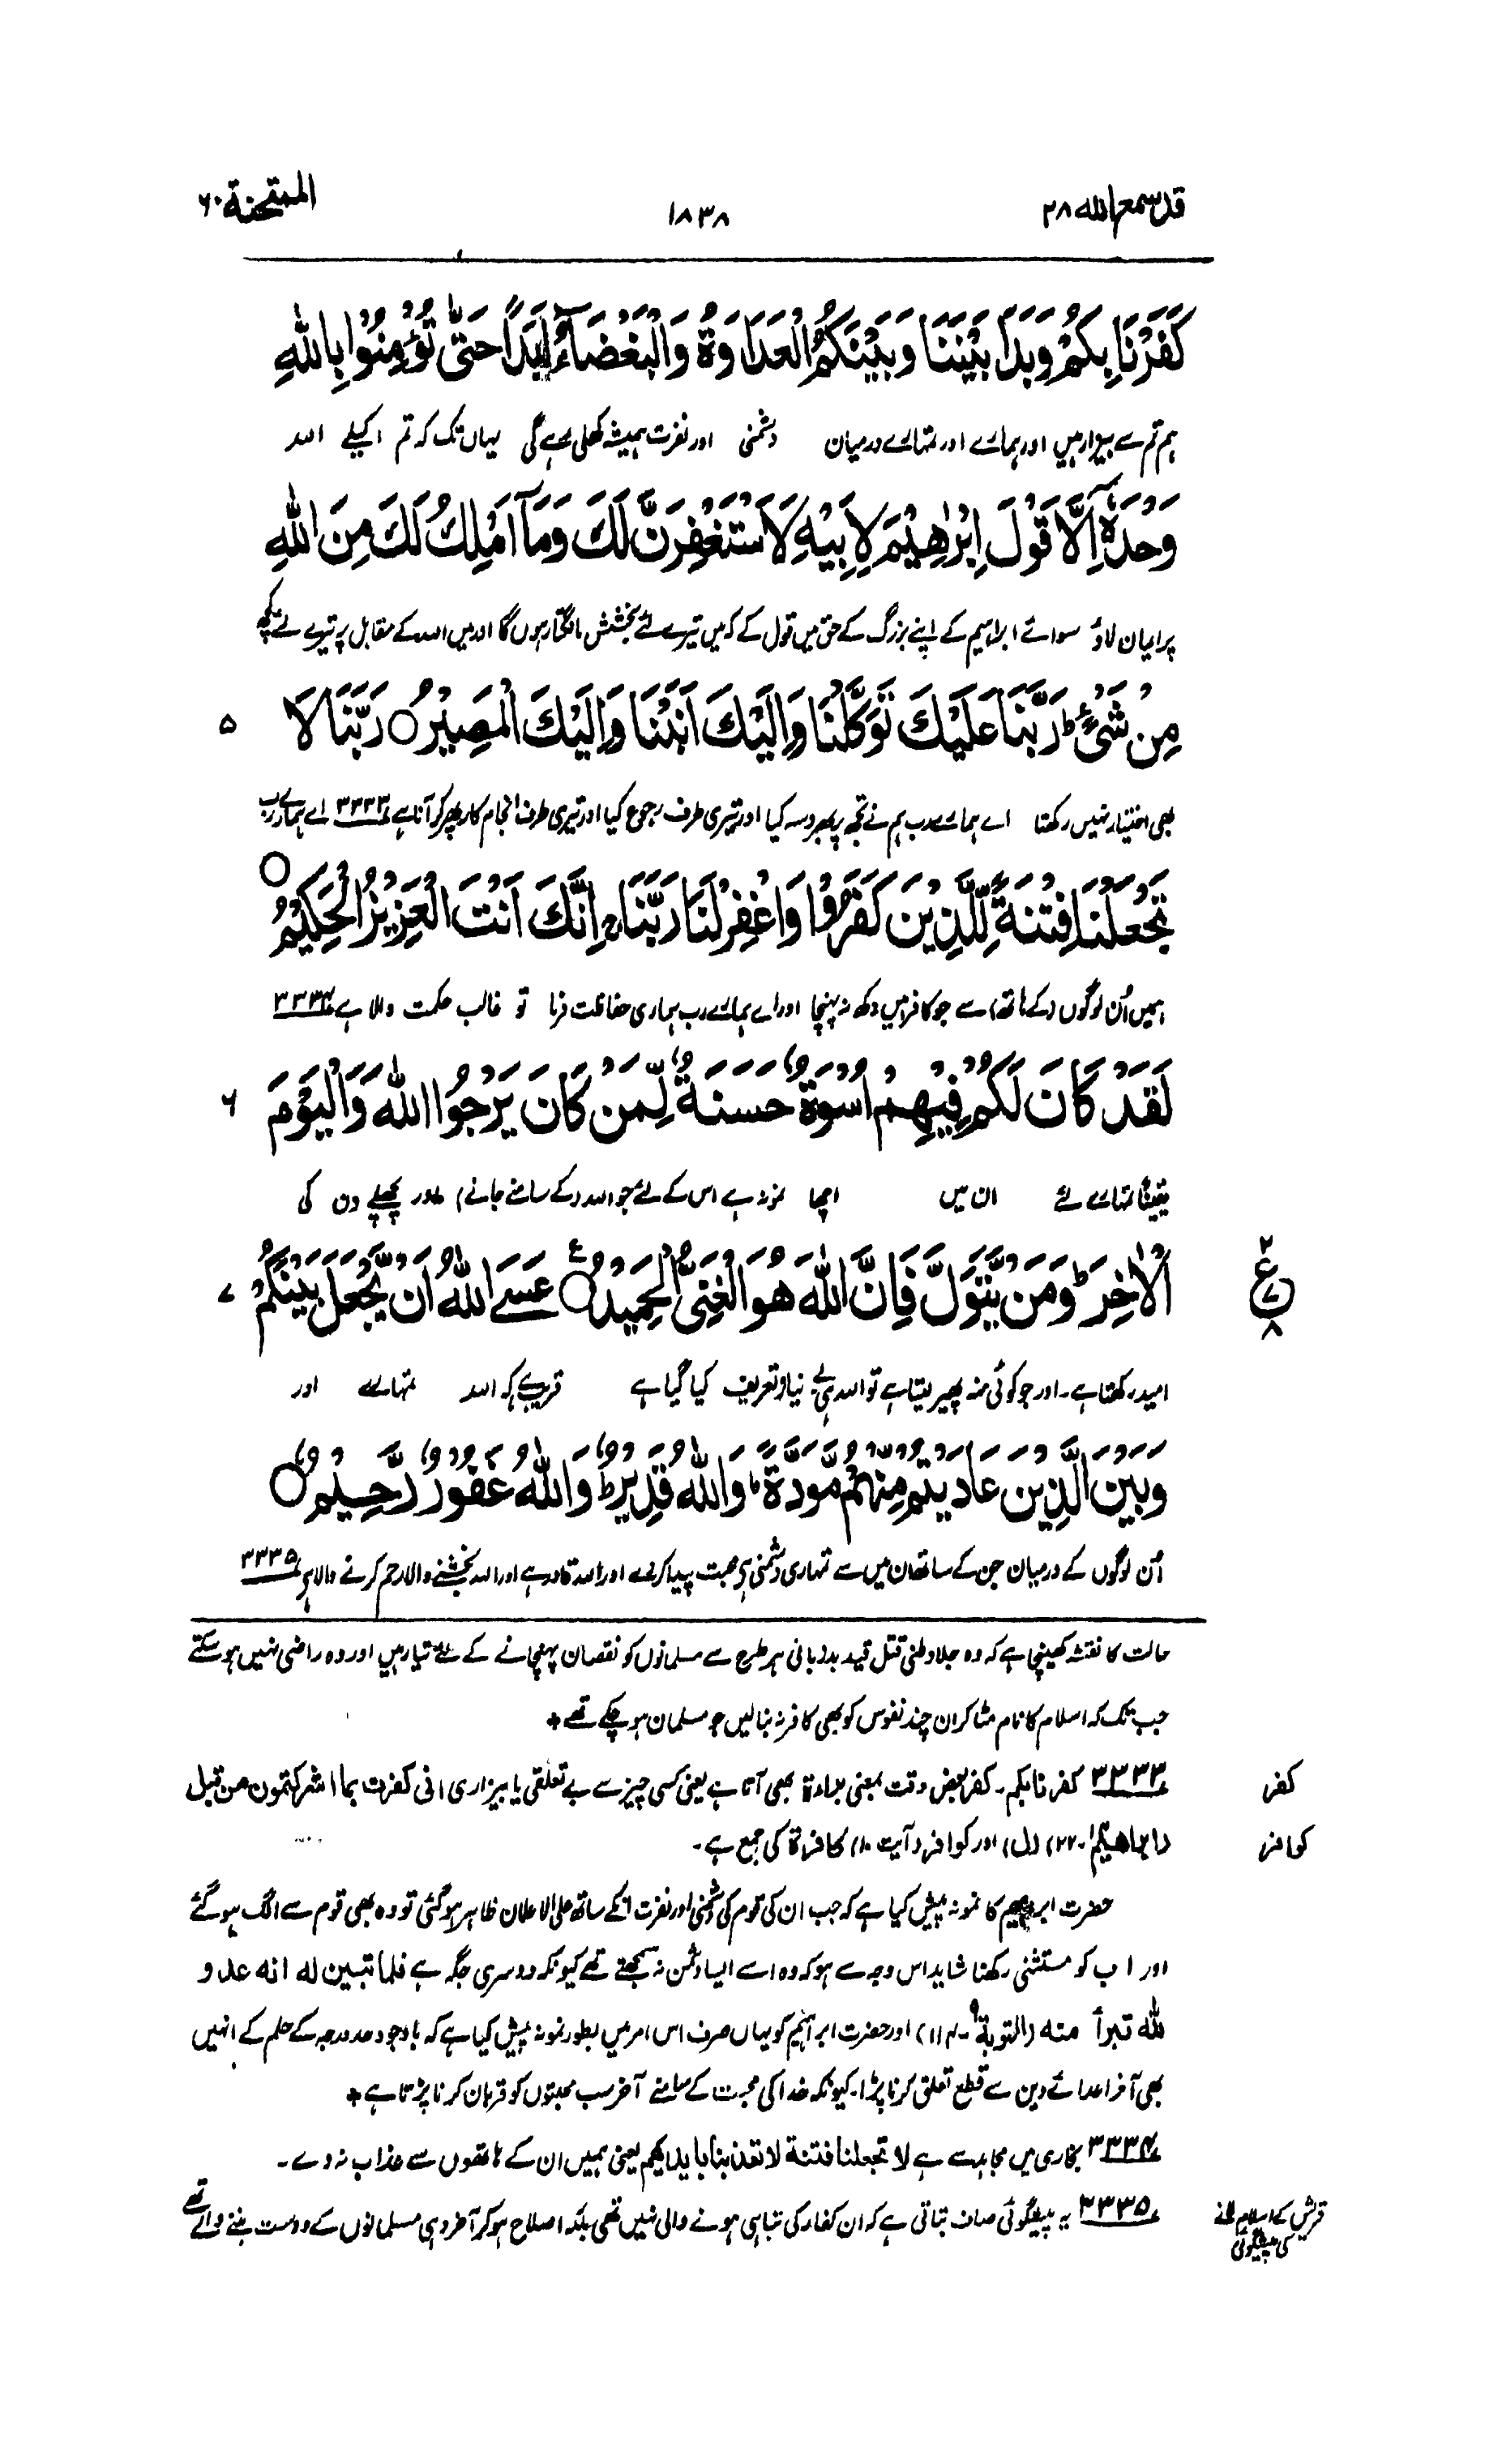 قد سمع الله ۲۸
۱۸۳۸
الممتحنة ۶۰
كَفَرْنَا بِكُمْ وَبَدَا بَيْنَنَا وَبَيْنَكُمُ الْعَدَاوَةُ وَالْبَغْضَآءُ اَبَدًا حَتّٰى تُؤْمِنُوْا بِاللّٰهِ
ہم تم سے بیزار ہیں اور ہمارے اور تمہارے درمیان دشمنی اور نفرت ہمیشہ کھلی رہے گی یہاں تک کہ تم اکیلے اللہ
وَحْدَهٗۤ اِلَّا قَوْلَ اِبْرٰهِيْمَ لِاَبِيْهِ لَاَسْتَغْفِرَنَّ لَكَ وَمَاۤ اَمْلِكُ لَكَ مِنَ اللّٰهِ
پر ایمان لاؤ سوائے ابراہیم کے اپنے بزرگ کے حق میں قول کے کہ میں تیرے لئے بخشش مانگتا رہوں گا اور میں اللہ کے مقابل پر تیرے لئے کچھ
مِنْ شَىْءٍ ؕ رَبَّنَا عَلَيْكَ تَوَكَّلْنَا وَاِلَيْكَ اَنَبْنَا وَاِلَيْكَ الْمَصِيْرُ ○ رَبَّنَا لَا
۵
بھی اختیار نہیں رکھتا اے ہمارے رب ہم نے تجھ پر بھروسہ کیا اور تیری طرف رجوع کیا اور تیری طرف انجام کار پھر کر آنا ہے ۳۳۳۳ اے ہمارے رب
تَجْعَلْنَا فِتْنَةً لِّلَّذِيْنَ كَفَرُوْا وَاغْفِرْ لَنَا رَبَّنَا ۚ اِنَّكَ اَنْتَ الْعَزِيْزُ الْحَكِيْمُ ○
ہمیں اُن لوگوں (کے ہاتھ) سے جو کافر ہیں دکھ نہ پہنچا اور اے ہمارے رب ہماری حفاظت فرما تو غالب حکمت والا ہے ۳۳۳۴
لَقَدْ كَانَ لَكُمْ فِيْهِمْ اُسْوَةٌ حَسَنَةٌ لِّمَنْ كَانَ يَرْجُوا اللّٰهَ وَالْيَوْمَ
۶
یقیناً تمہارے لئے ان میں اچھا نمونہ ہے اس کے لئے جو اللہ (کے سامنے جانے) اور پچھلے دن کی
الْاٰخِرَ ؕ وَمَنْ يَّتَوَلَّ فَاِنَّ اللّٰهَ هُوَ الْغَنِىُّ الْحَمِيْدُ ○ ع عَسَى اللّٰهُ اَنْ يَّجْعَلَ بَيْنَكُمْ
۷
۲
ع
۷
۸
امید رکھتا ہے۔ اور جو کوئی منہ پھیر لیتا ہے تو اللہ ہی بے نیاز تعریف کیا گیا ہے قریب ہے کہ اللہ تمہارے اور
وَبَيْنَ الَّذِيْنَ عَادَيْتُمْ مِّنْهُمْ مَّوَدَّةً ؕ وَاللّٰهُ قَدِيْرٌ ؕ وَاللّٰهُ غَفُوْرٌ رَّحِيْمٌ ○
اُن لوگوں کے درمیان جن کے ساتھ ان میں سے تمہاری دشمنی ہے محبت پیدا کردے اور اللہ قادر ہے اور اللہ بخشنے والا رحم کرنے والا ہے ۳۳۳۵
حالت کا نقشہ کھینچا ہے کہ وہ جلا وطنی قتل قید بدزبانی ہر طرح سے مسلمانوں کو نقصان پہنچانے کے لئے تیار ہیں اور وہ راضی نہیں ہو سکتے
جب تک کہ اسلام کا نام مٹا کر ان چند نفوس کو بھی کافر نہ بنالیں جو مسلمان ہو چکے تھے +
کفر
۳۳۳۳ کفرنا بکم۔ کفر بعض وقت بمعنی براءة بھی آتا ہے یعنی کسی چیز سے بے تعلقی یا بیزاری انی کفرت بما اشرکتمون من قبل
کوافر
(ابراھیم۔۲۲) (ل) اور کوافر (آیت ۱۰) کافرة کی جمع ہے۔
حضرت ابراہیم کا نمونہ پیش کیا ہے کہ جب ان کی قوم کی دشمنی اور نفرت انکے ساتھ علی الاعلان ظاہر ہو گئی تو وہ بھی قوم سے الگ ہو گئے
اور اب کو مستثنیٰ رکھنا شاید اس وجہ سے ہو کہ وہ اسے ایسا دشمن نہ سمجھتے تھے کیونکہ دوسری جگہ ہے فلما تبین له انه عدو
لله تبرأ منه (التوبة ۹۔۱۱۴) اور حضرت ابراہیم کو یہاں صرف اس امر میں بطور نمونہ پیش کیا ہے کہ باوجود حد درجہ کے حلم کے انہیں
بھی آخر اعدائے دین سے قطع تعلق کرنا پڑا۔ کیونکہ خدا کی محبت کے سامنے آخر سب محبتوں کو قربان کرنا پڑتا ہے +
۳۳۳۴ بخاری میں مجاہد سے ہے لا تجعلنا فتنة لا تعذبنا بایدیھم یعنی ہمیں ان کے ہاتھوں سے عذاب نہ دے۔
۳۳۳۵ یہ پیشگوئی صاف بتاتی ہے کہ ان کفار کی تباہی ہونے والی نہیں تھی بلکہ اصلاح ہو کر آخر وہی مسلمانوں کے دوست بننے والے تھے
قریش کے اسلام لانے
کی پیشگوئی